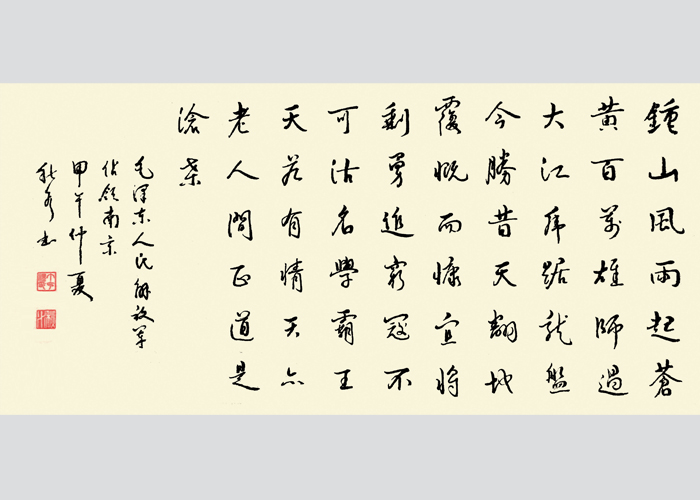 鍾山風雨起蒼
黃百萬雄師過
大江虎踞龍盤
今勝昔天翻地
覆慨而慷宜將
剩勇追窮寇不
可沽名學霸王
天若有情天亦
老人間正道是
滄桑
毛澤东人民解放军
佔領南京
甲午仲夏
书